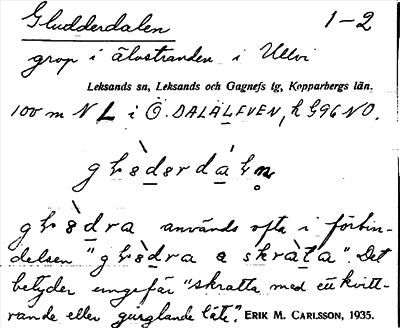 Gludderdalen 1-2
grop i älvstranden i Ullvi
Leksands sn, Leksands och Gagnefs tg, Kopparbergs län.
100 m N L i Ö. DALÄLEVEN, h 596 NO.
användes ofta i förbin-
delsen " a skràta". Det
betyder ungefär "skratta med ett kvitt-
rande eller gurglande läte". ERIK M. CARLSSON, 1935.